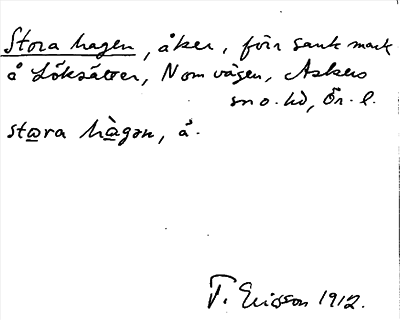 Stora hagen, åker, förr sank mark
å Löksätter, N om vägen, Askers
sn o. hd, Ör. l.
stora hàgan, å.
T. Ericsson 1912.